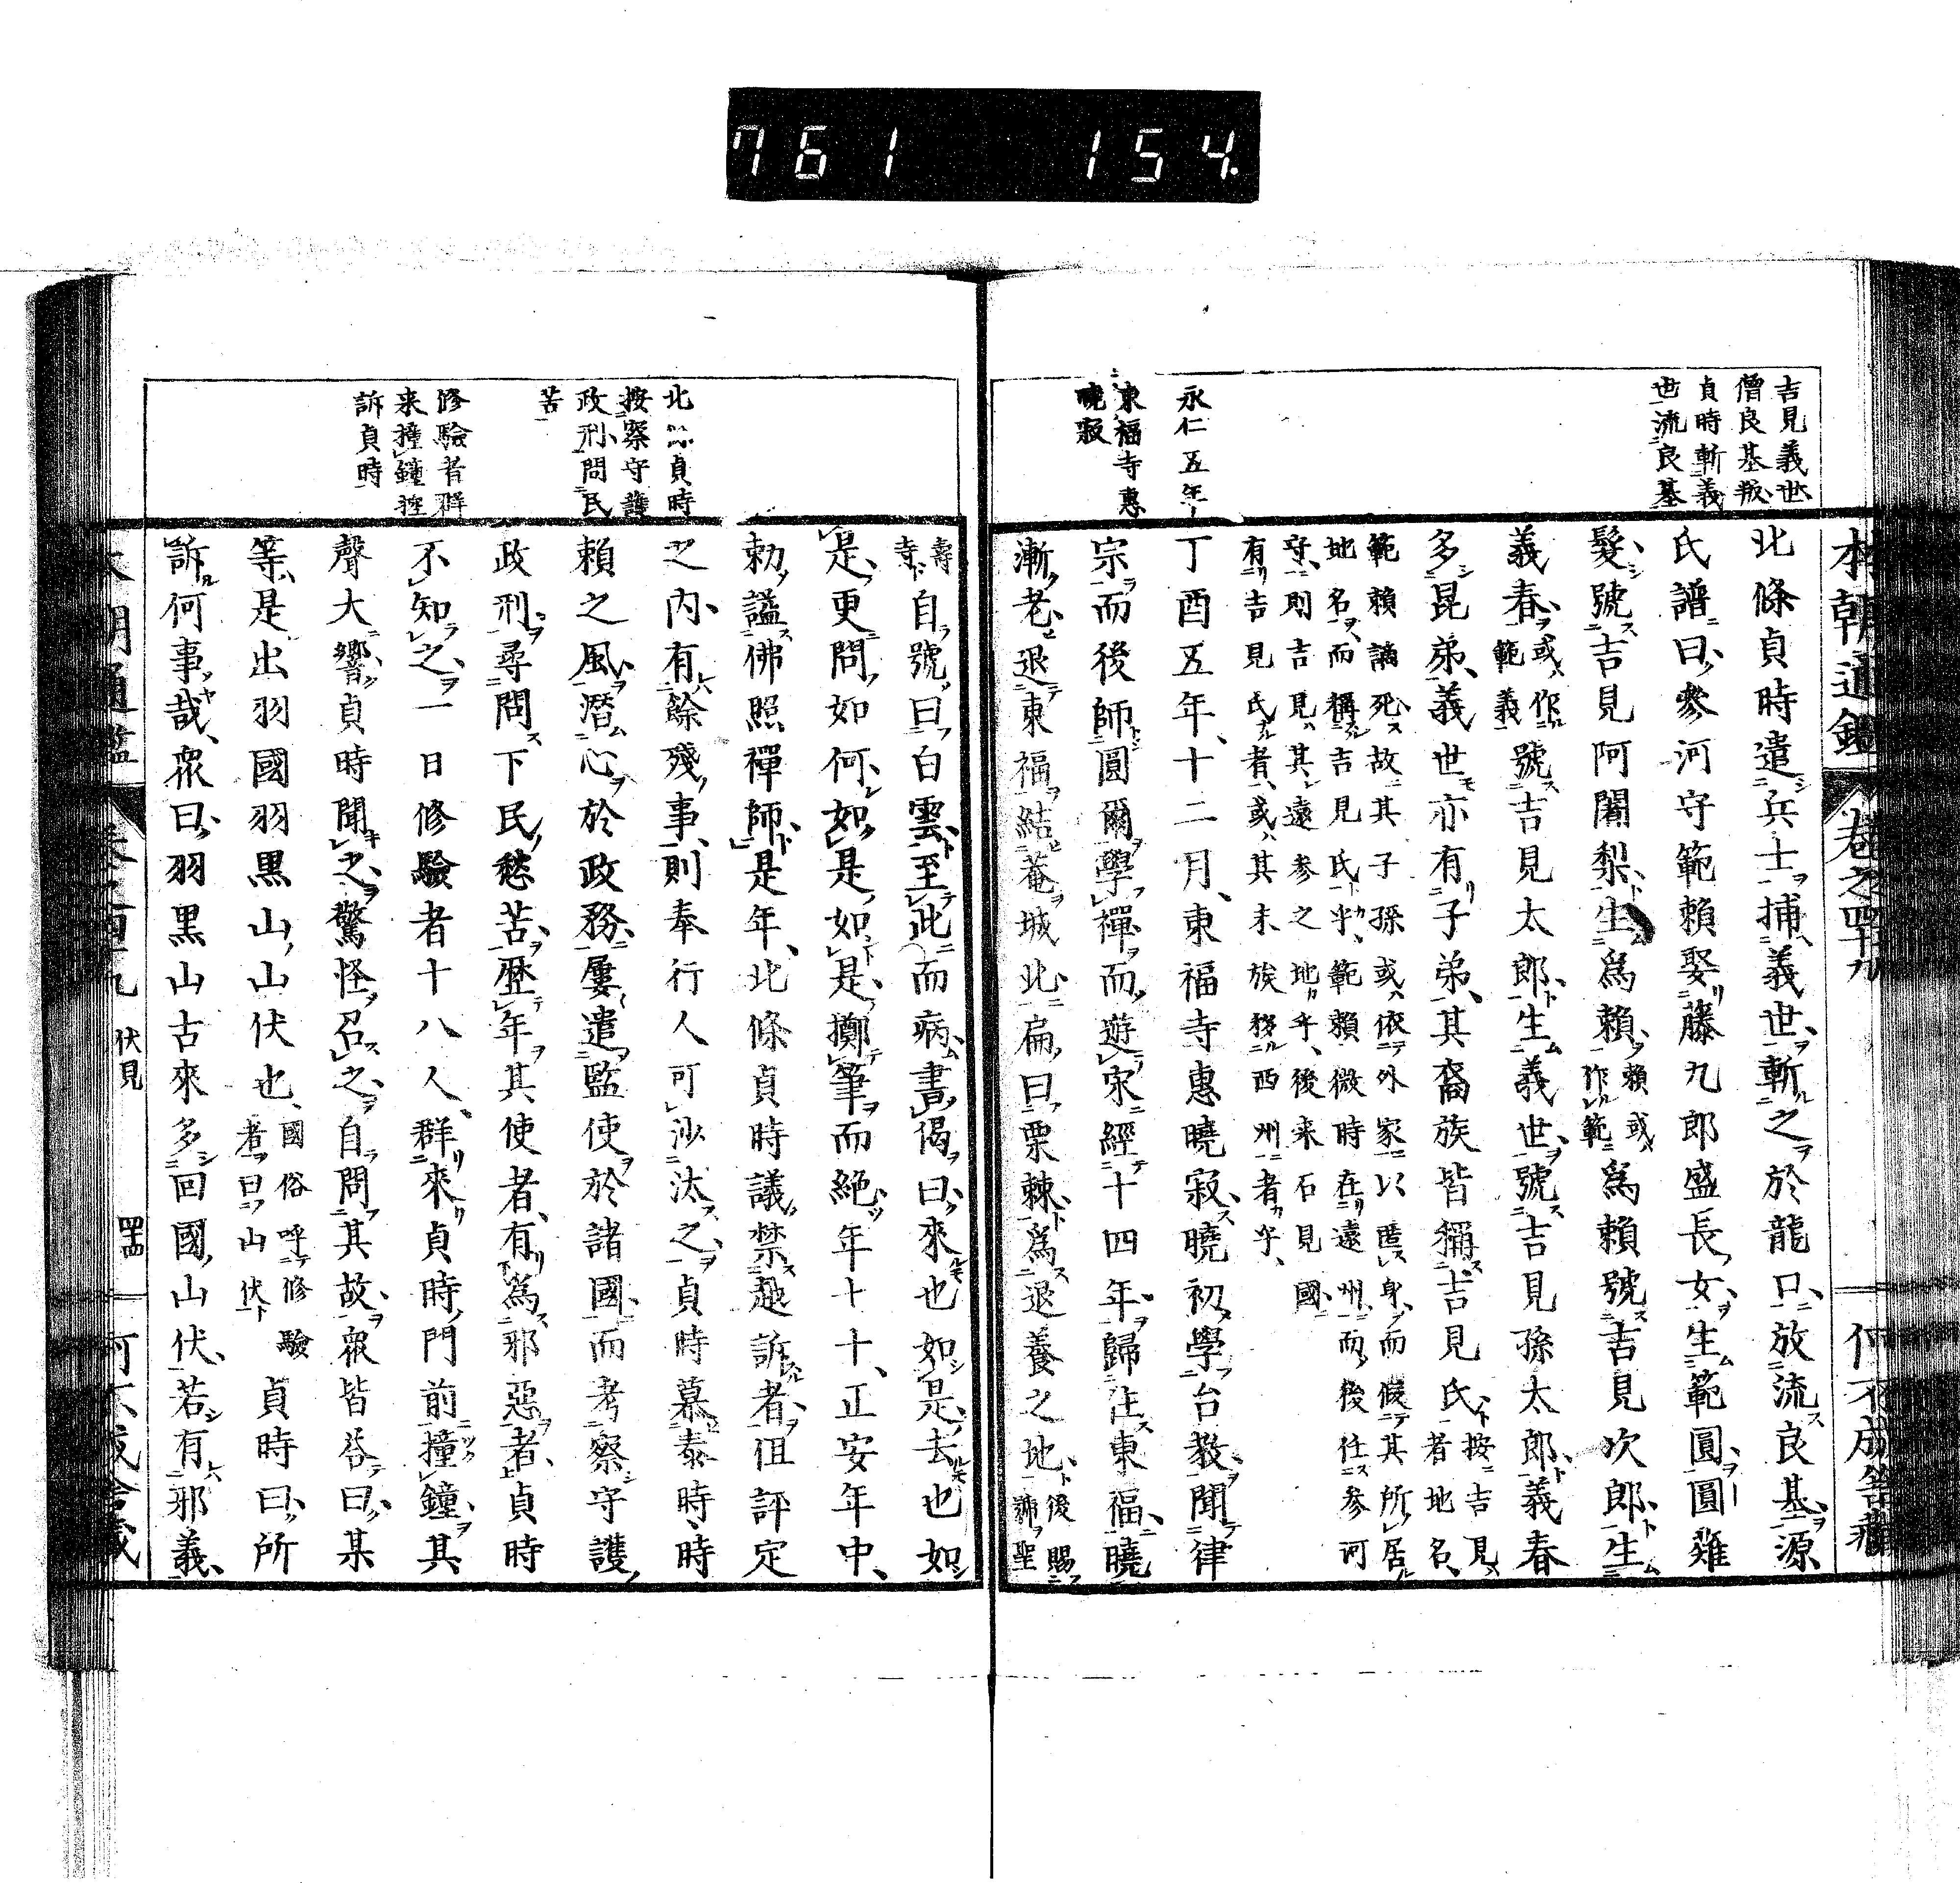 761 154
本朝通鑑 卷之四十九
吉見義世
僧良基叛
貞時斬義
世流良基
永仁五年
東福寺惠
曉寂
北條貞時遣兵士捕義世斬之於龍口放流良基源
氏譜曰參河守範賴娶藤九郎盛長女生範圓圓薙
髮號吉見阿闍梨生爲賴賴或作範爲賴號吉見次郎生
義春或作範義號吉見太郎生義世號吉見孫太郎義春
多昆弟義世亦有子弟其裔族皆稱吉見氏按吉見者地名
範賴謫死故其子孫或依外家以匿身而假其所居
地名而稱吉見氏乎範賴微時在遠州而後任參河
守則吉見其遠參之地乎後来石見國
有吉見氏者或其末族移西州者乎
丁酉五年十二月東福寺惠曉寂曉初學台教聞律
宗而後師圓爾學禪而遊宋經十四年歸住東福曉
漸老退東福結菴城北扁曰栗棘爲退養之地後賜號聖
北條貞時
按察守護
政刑問民
苦
修驗者群
来撞鐘控
訴貞時
壽寺自號曰白雲至此而病書偈曰來也如是去也如
是更問如何如是如是擲筆而絶年七十正安年中
勅謚佛照禪師是年北條貞時議禁越訴者但評定
之内有餘殘事則奉行人可沙汰之貞時慕泰時時
賴之風潛心於政務屢遣監使於諸國而考察守護
政刑尋問下民愁苦歴年其使者有爲邪惡者貞時
不知之一日修驗者十八人群來貞時門前撞鐘其
聲大響貞時聞之驚怪召之自問其故衆皆荅曰某
等是出羽國羽黒山山伏也國俗呼修驗者曰山伏貞時曰所
訴何事哉衆曰羽黒山古來多回國山伏若有邪義
伏見